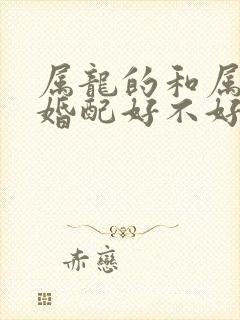 属龍的和属
婚配好不好
赤戀